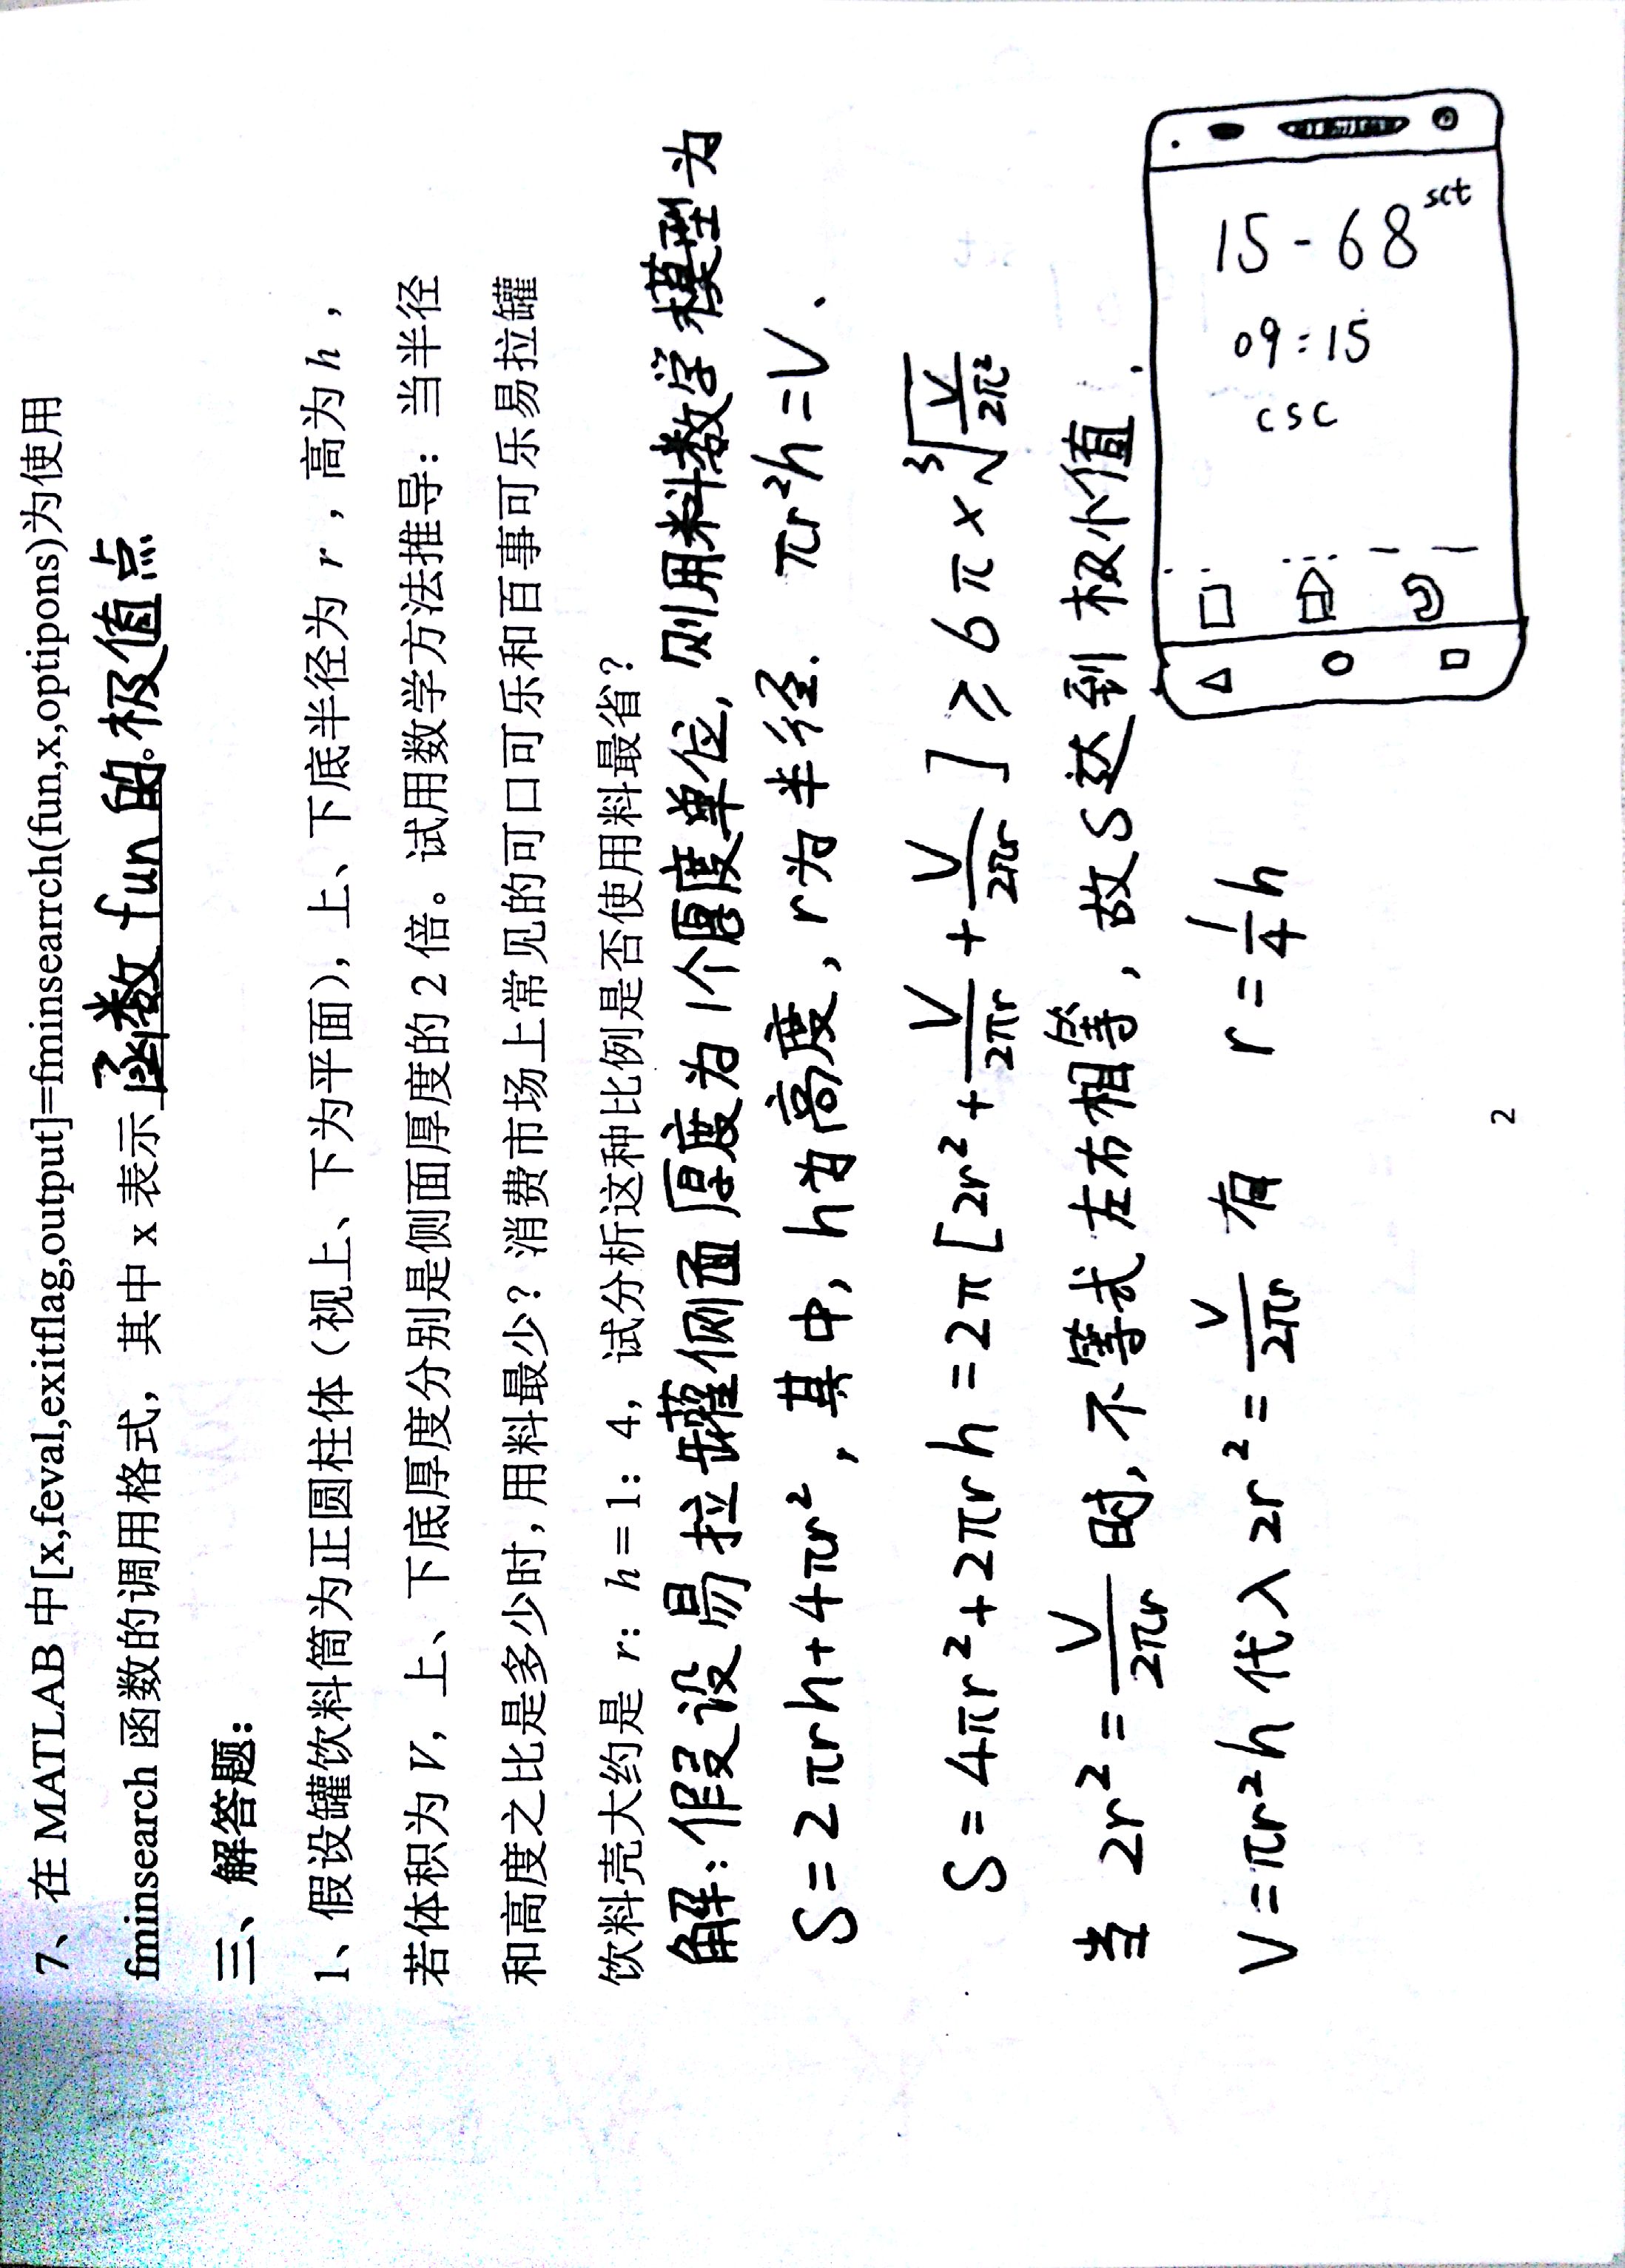 7、在 MATLAB 中[x,feval,exitflag,output]=fminsearrch(fun,x,optipons)为使用
fminsearch 函数的调用格式，其中 x 表示 函数 fun 的 极值点 。
三、解答题：
1、假设罐饮料筒为正圆柱体（视上、下为平面），上、下底半径为 r，高为 h，
若体积为 V，上、下底厚度分别是侧面厚度的 2 倍。试用数学方法推导：当半径
和高度之比是多少时，用料最少？消费市场上常见的可口可乐和百事可乐易拉罐
饮料壳大约是 r: h = 1: 4，试分析这种比例是否使用料最省？
解：假设易拉罐侧面厚度为1个厚度单位，则用料数学模型为
S=2πrh+4πr²，其中，h为高度，r为半径． πr²h=V．
S=4πr²+2πrh=2π[2r²+V/2πr+V/2πr]≥6π×∛(V/2π²)
当 2r²=V/2πr 时，不等式左右相等，故S达到极小值．
V=πr²h 代入 2r²=V/2πr 有 r=1/4h
15-68 sct
09:15
csc
2